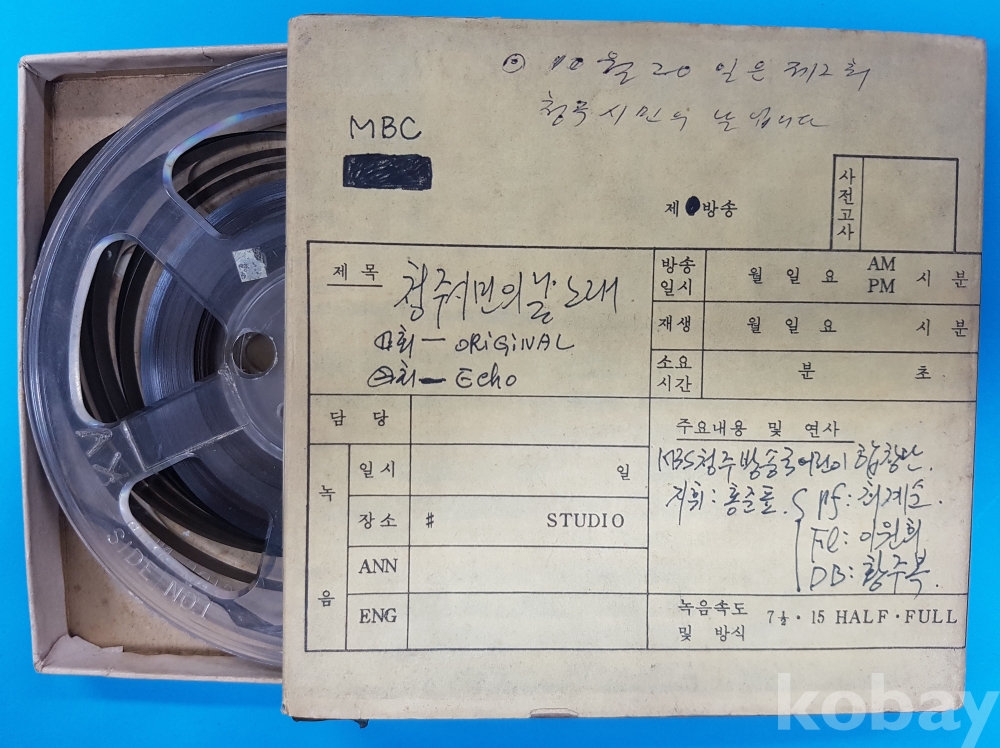 ⊙ 10월 20일은 제2회
청주시민의 날 입니다
MBC
제 방송
사전고사
제목
청주시민의 날 노래
1회 — ORIGINAL
2회 — Echo
방송일시 월 일 요 AM PM 시 분
재생 월 일 요 시 분
소요시간 분 초
담당
녹음
일시 일
장소 # STUDIO
ANN
ENG
주요내용 및 연사
KBS청주방송국어린이 합창단.
지휘: 홍준표. pf: 최계순.
Fl: 이원희
DB: 황주복.
녹음속도 및 방식 7½ · 15 HALF · FULL
SIDE NO.1
kobay